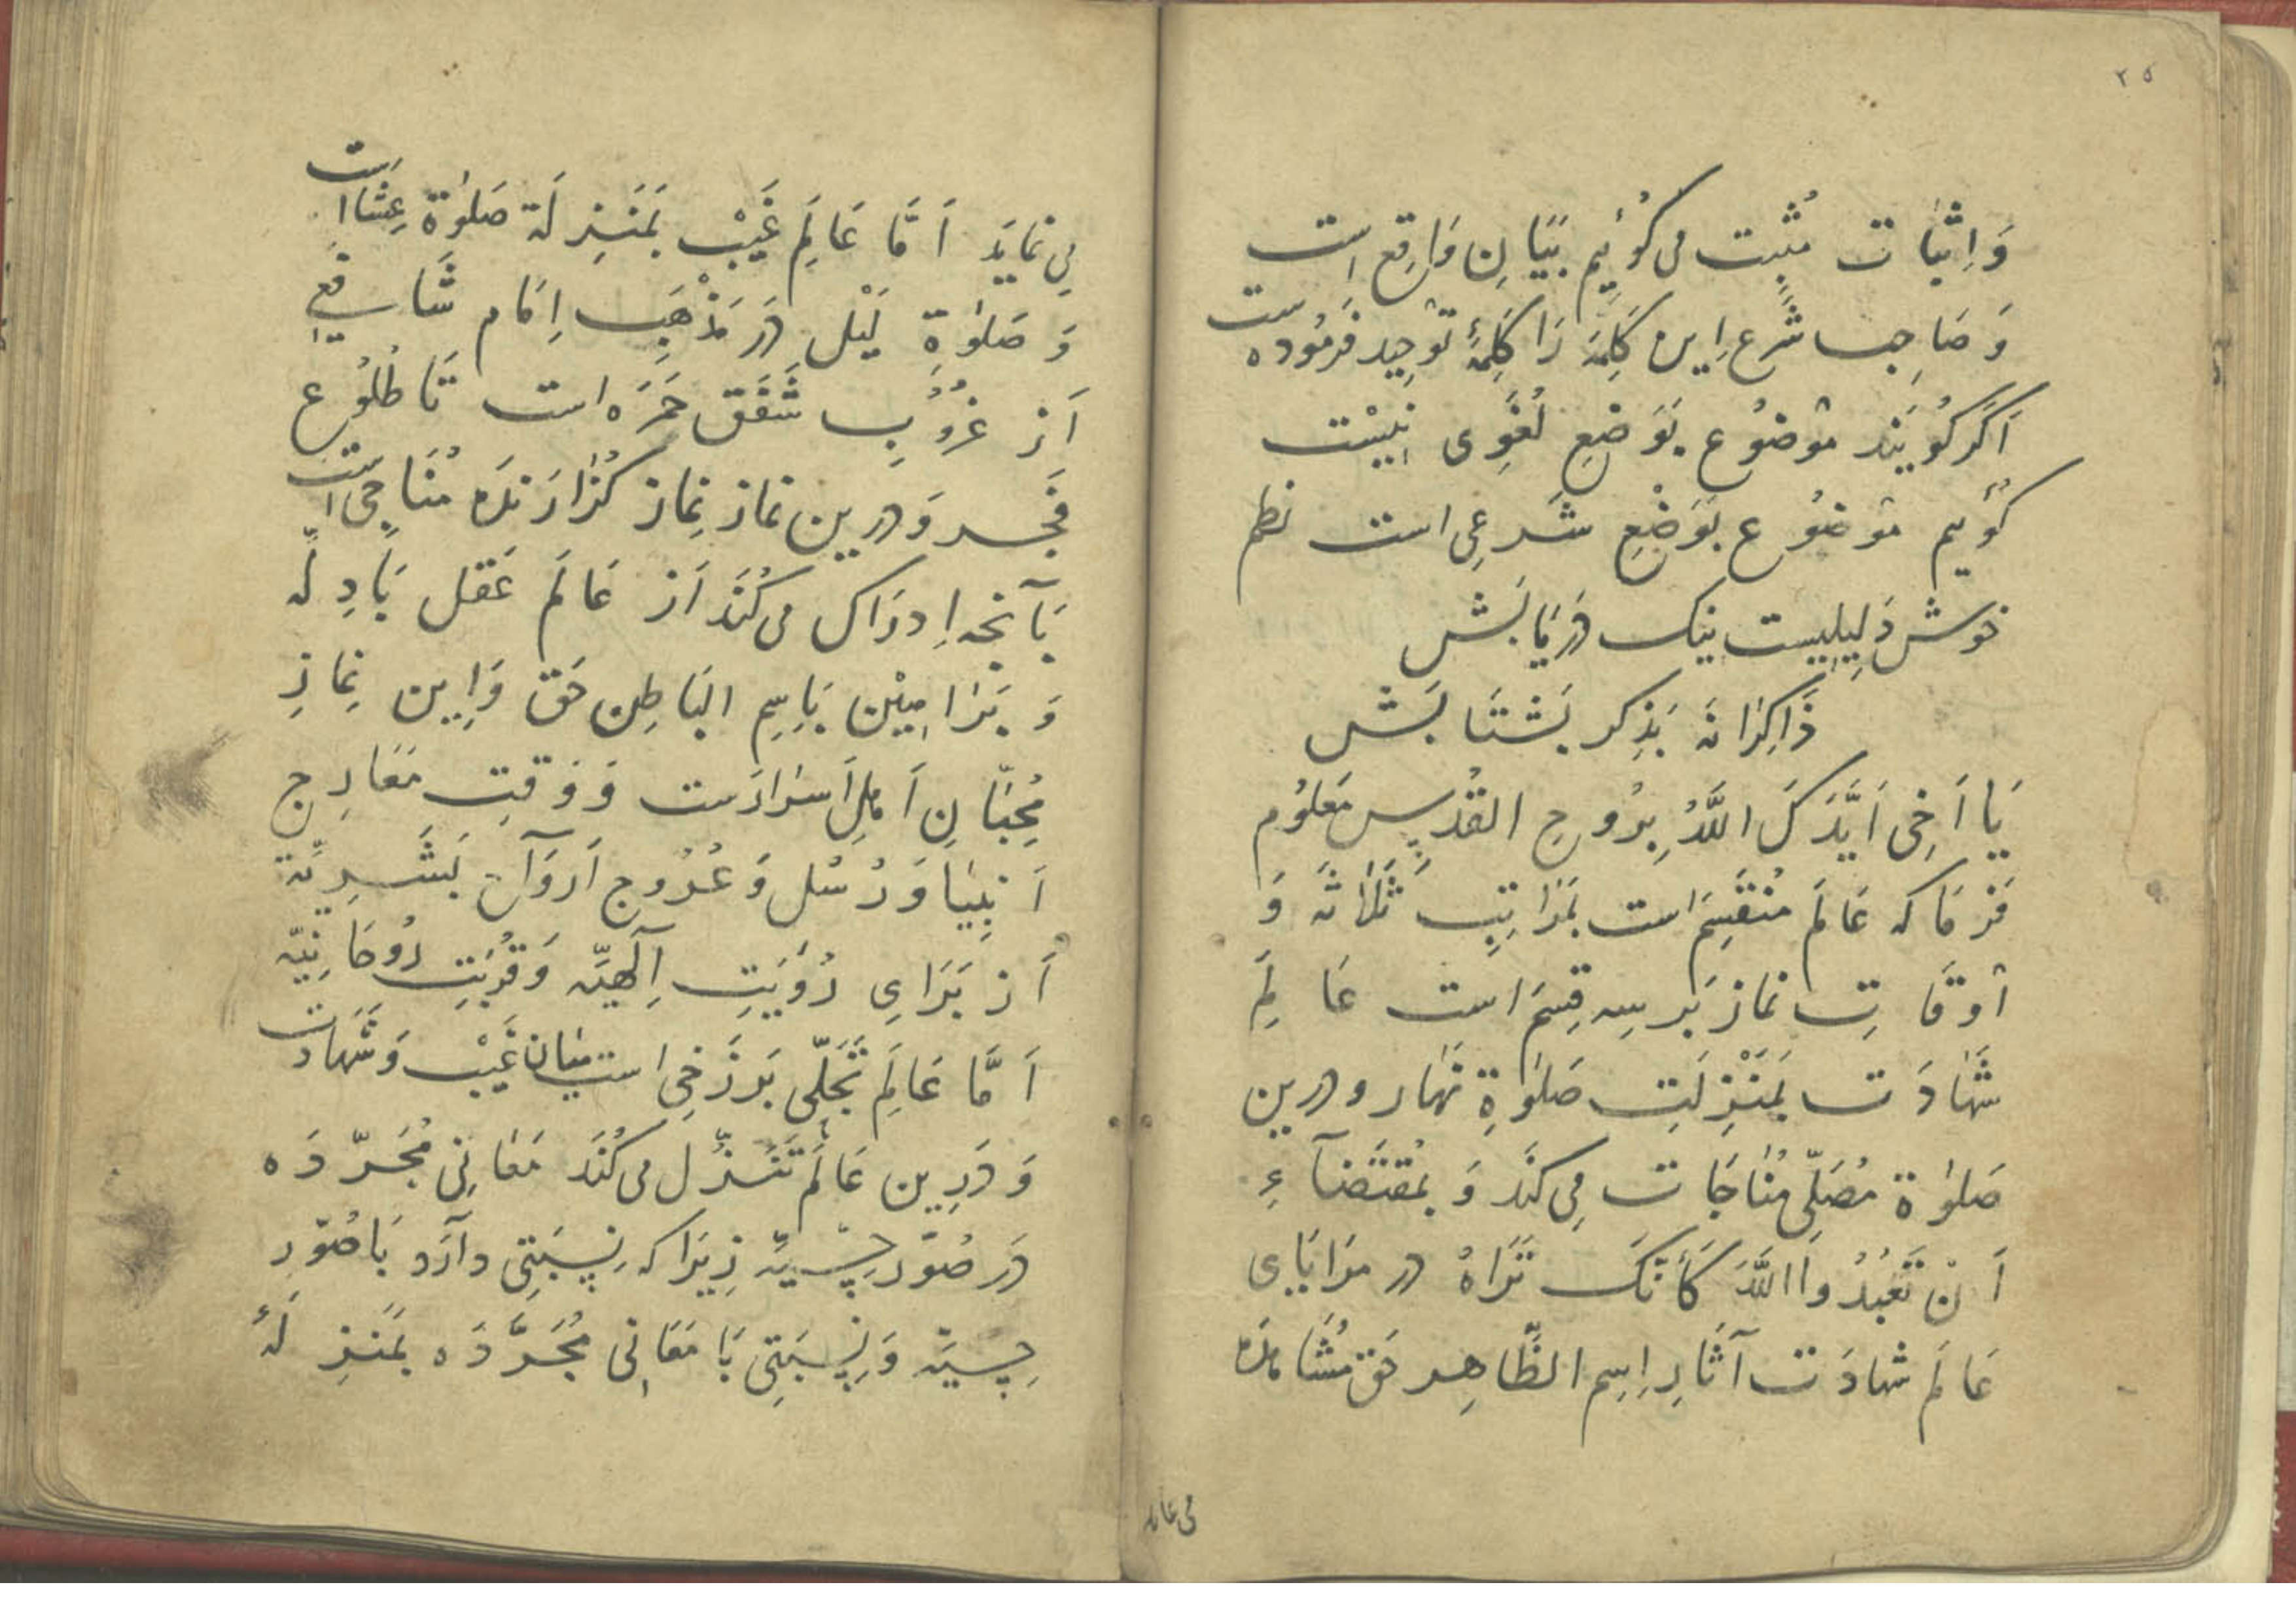 ۲۵
وَاِثْبَات مُثْبِت می کُوئِیم بَیَانِ وَاقِع است
وَ صَاحِب شَرع اِین کَلِمَه رَا کَلِمَۀ تَوحِید فَرمُوده است
اَکَر کُویَند مَوضُوع بَوَضعِ لُغَوِی نِیسْت
کُوئیم مَوضُوع بَوَضْعِ شَرعِی است نظم
خوش دَلِیلِیست نیک دَریَابَش
ذَاکِرَانَه بَذِکر بَشتَابَش
یَا اَخِی اَیَّدَکَ اللَّهُ بِرُوحِ القُدُسِ مَعلُوم
فَرمَا که عَالَم مُنْقَسِم است بَمَرَاتِبِ ثَلَاثَه وَ
اَوقَاتِ نماز بَر سِه قِسم است عَالَمِ
شَهَادَت بَمَنْزِلَتِ صَلوٰةِ نَهَار و درین
صَلوٰة مُصَلِّی مُنَاجَات مِی کَنَد وَ بمُقتَضَآءِ
اَنْ تَعْبُدُوا اللَّهَ کَأَنَّکَ تَرَاهُ در مَرَایَای
عَالَم شهادَت آثَارِ اِسِم الظَّاهِر حَق مُشَاهَدَه
می نماید
مِی نمایَد اَمَّا عَالَمِ غَیْب بمَنزِلَة صَلوٰة عِشَا است
وَ صَلوٰةِ لَیْل دَر مَذْهَبِ اِمَام شَافِعِی
اَز غُرُوبِ شَفَق حَمرَه است تَا طُلُوع
فَجر وَ درین نماز نِماز کُزَارَنده مُنَاجِی است
بَآنچه اِدرَاک می کُنَد اَز عَالَم عَقل بَادِلَّه
وَ بَرَاهِیْن بَاِسِم البَاطِن حَق وَاِین نِمازِ
مُحِبَّانِ اَهلِ اَسرَارَست وَ وَقتِ مَعَارِج
اَنبِیَا وَ رُسُل وَ عُرُوج اَروَآح بَشَرِیَّة
اَز بَرَایِ رُؤیَتِ اِلٰهِیَّه وَ قُربَتِ رُوحَانِیَّه
اَمَّا عَالَمِ تَجَلِّی بَرزَخِی است میَان غَیْب وَ شَهَادَت
وَ دَرِین عَالَم تَنَزُّل می کُنَد مَعَانِی مُجَرَّدَه
دَر صُوَرِ حِسّیَّه زِیرَا که نِسبَتِی دارَد بَا صُوَرِ
حِسیَّه وَ نِسبَتِی بَا مَعَانِی مُجَرَّدَه بمَنزِلَۀ